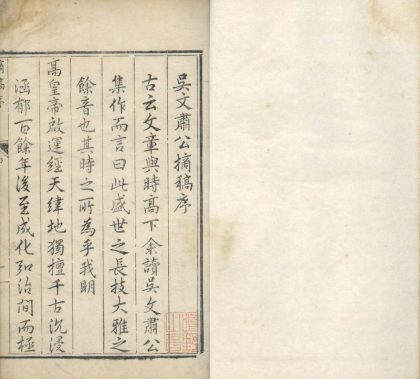 吳文肅公摘稿序
古云文章與時高下余讀吳文肅公
集作而言曰此盛世之長技大雅之
餘音也其時之所為乎我明
高皇帝啟運經天緯地獨擅千古沉浸
涵郁百餘年後至成化弘治間而極